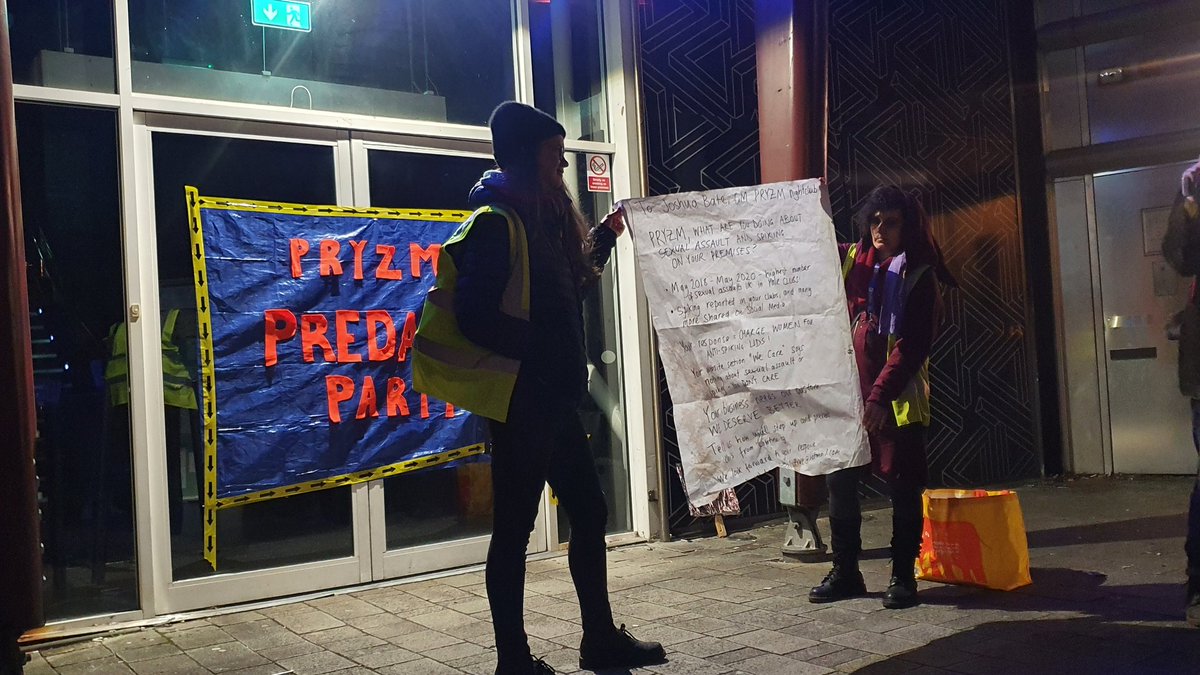 PRYZM
PREDA
PART
To Joshua Bate, GM PRYZM nightclub
PRYZM, WHAT ARE YOU DOING ABOUT
SEXUAL ASSAULT AND SPIKING
ON YOUR PREMISES?
• May 2018 - May 2020 - highest number
of sexual assaults in
• Spiking reported in your clubs, and many
more shared on Social Media
Your response = CHARGE WOMEN FOR
ANTI-SPIKING LIDS!
Your website section "We Care" says
nothing about sexual assault or
CARE
Your business needs our
WE DESERVE BETTER
Tell us how you'll step up and
from
We look forward to your